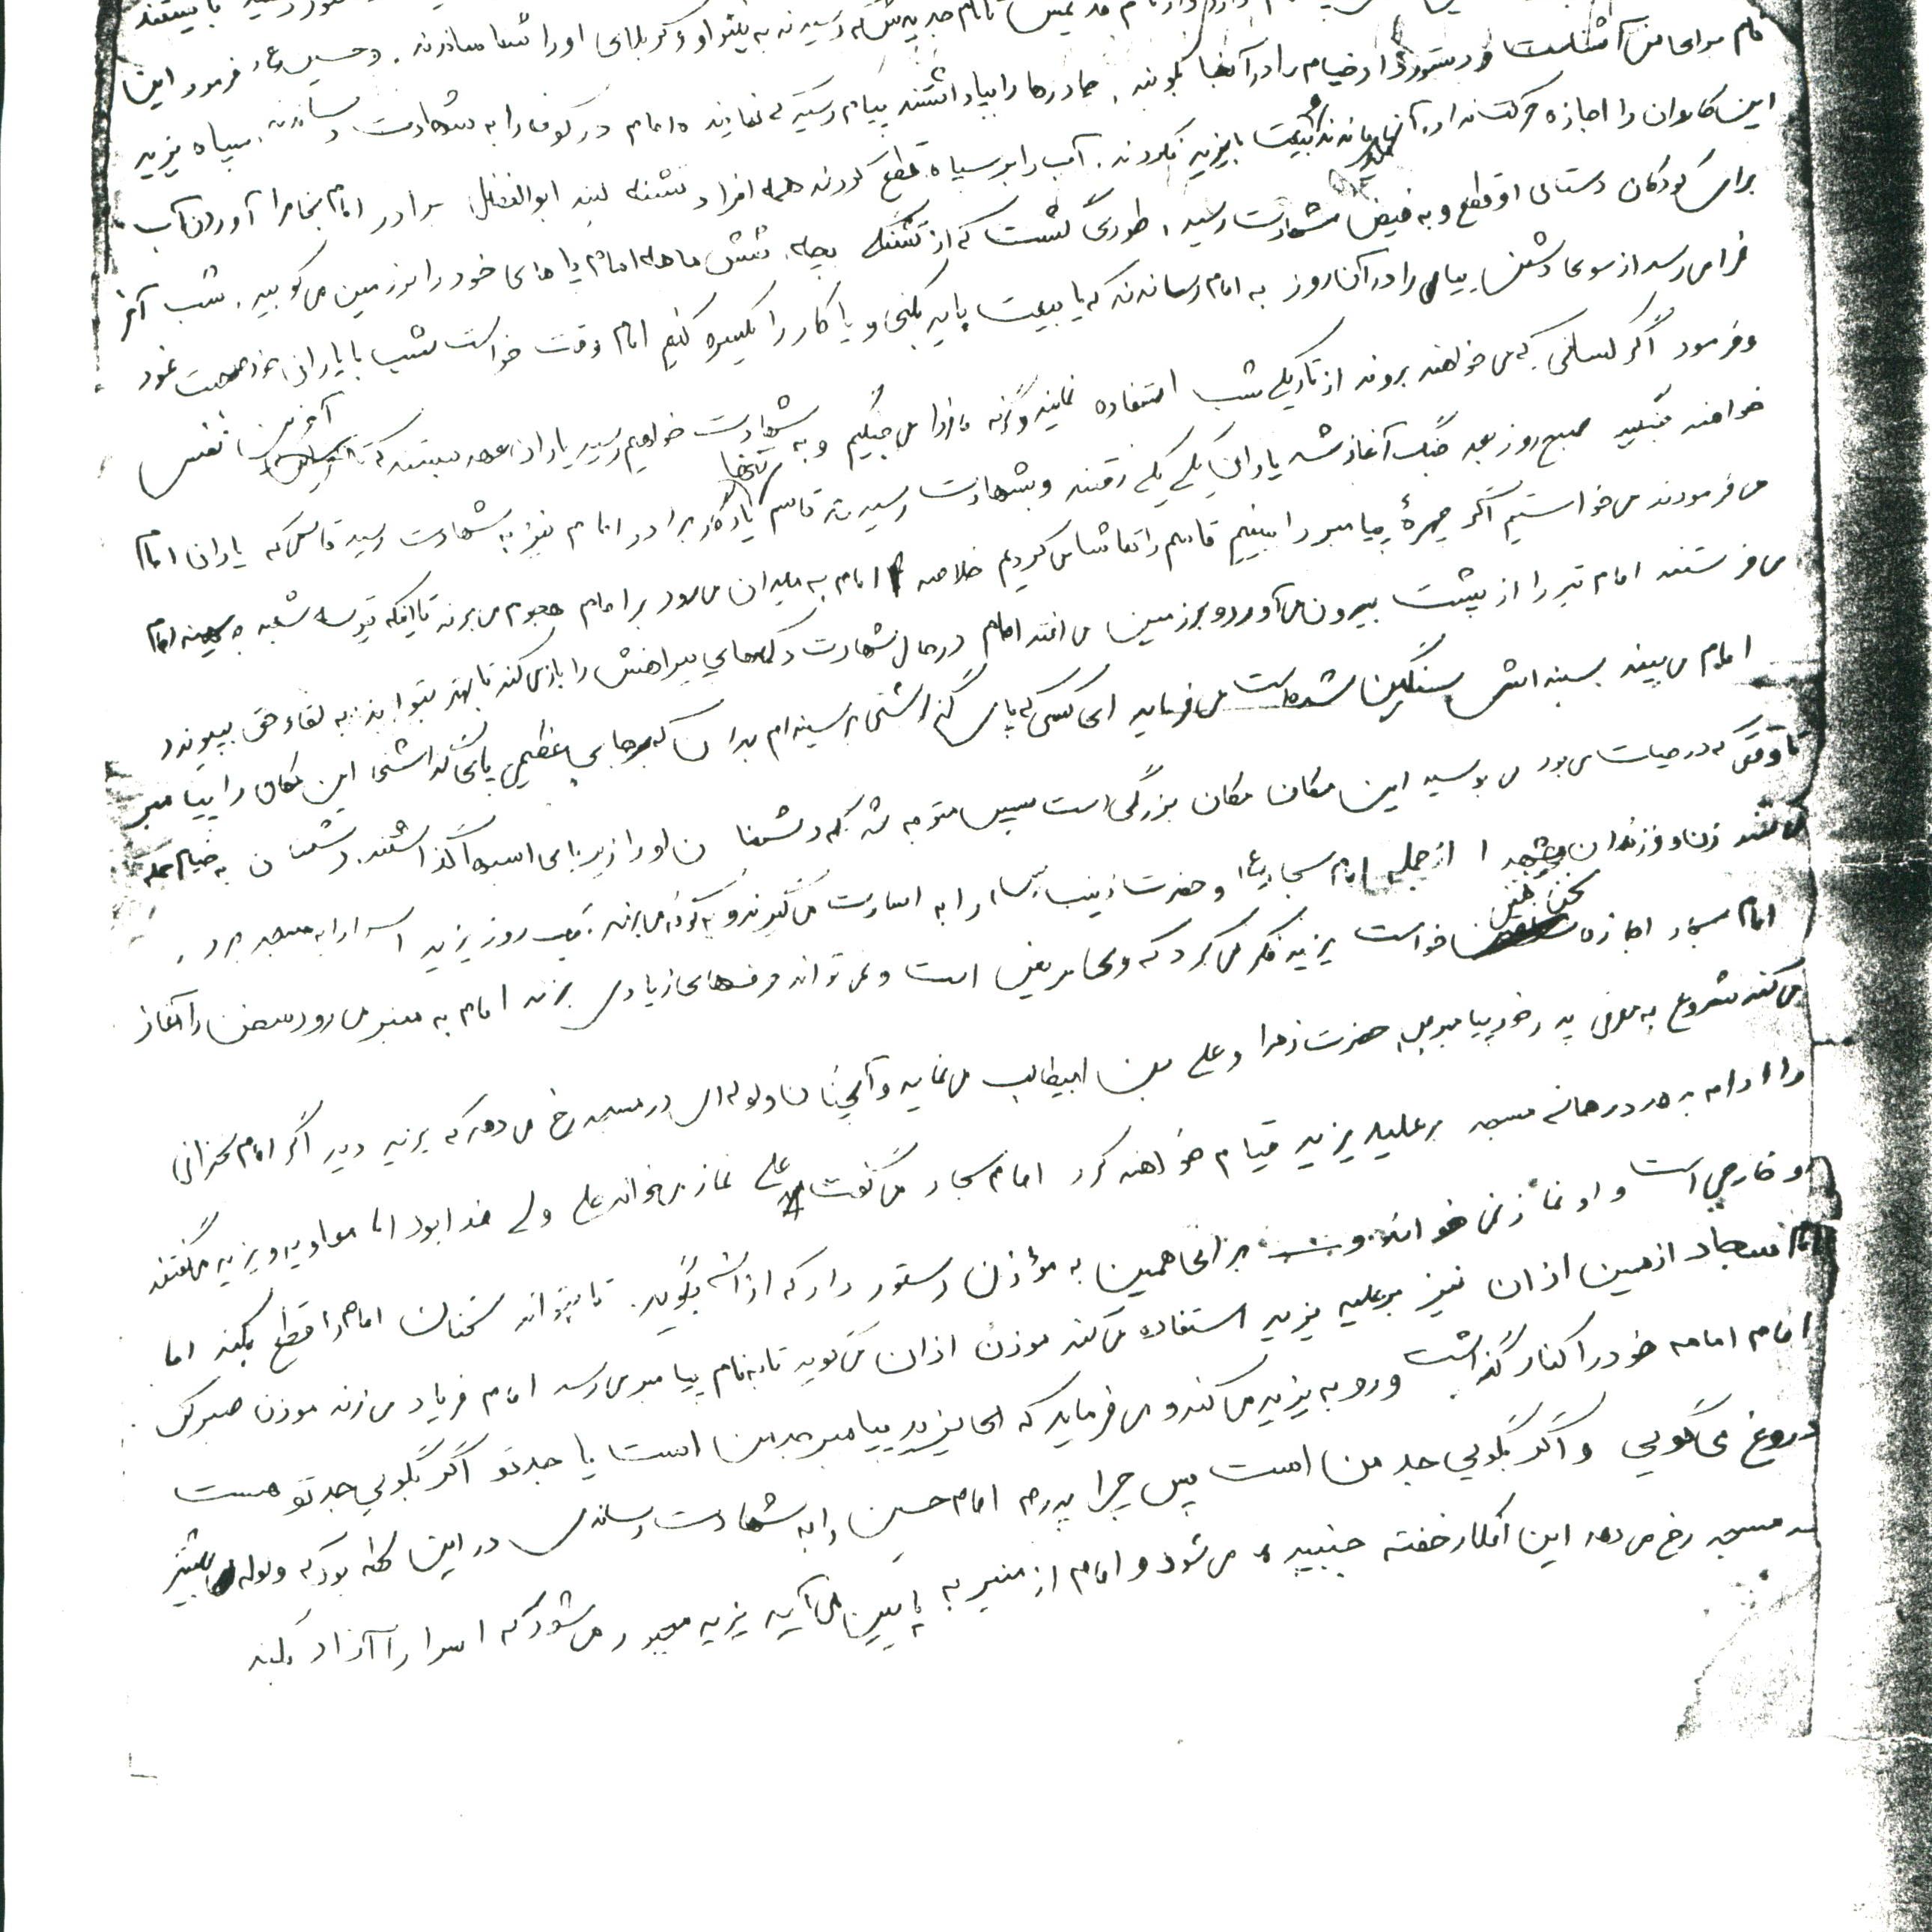 نام جدیدش که رسیدند به نینوا و کربلای او را شناساندند. و حسین (ع) فرمود این
نام برای من آشناست و دستور داد خیام را در آنجا بکوبند. چادرها را بپا داشتند پیام رسید که نماینده امام در کوفه را به شهادت رساندند. سپاه یزید
این کاروان را اجازه حرکت نداد. آنها ماندند بیعت با یزید نکردند. آب را بر سپاه قطع کردند همه افراد تشنه لبند ابوالفضل برادر امام بخاطر آوردن آب
برای کودکان دستهای او قطع و به فیض شهادت رسید. طوری گشت که از تشنگی بچه شش ماهه امام پاهای خود را بر زمین می کوبید. شب آخر
فرا می رسد از سوی دشمن پیامی را در آن روز به امام رساندند که یا بیعت باید بکنی و یا کار را یکسره کنیم امام وقت خواست شب با یاران خود صحبت نمود
و فرمود اگر کسانی که می خواهند بروند از تاریکی شب استفاده نمایند وگرنه ما فردا می جنگیم و به شهادت خواهیم رسید یاران عهد بستند که تا آخرین نفس
خواهند جنگید صبح روز بعد جنگ آغاز شد یاران یکی یکی رفتند و بشهادت رسیدند قاسم تنها یادگار برادر امام نیز به شهادت رسید قاسمی که یاران امام
می فرمودند می خواستیم اگر چهرهٔ پیامبر را ببینیم قاسم را تماشا می کردیم خلاصه امام به میدان می رود بر امام هجوم می برند تا اینکه تیر سه شعبه به سینه امام
می فرستند امام تیر را از پشت بیرون می آورد و بر زمین می افتد امام در حال شهادت دکمه های پیراهنش را باز می کند تا بهتر بتواند به لقاء حق بپیوندد
امام می بیند سینه اش سنگین شده است می فرماید ای کسی که پا می گذاشتی بر سینه ام بدان که بر جای عظیمی پا گذاشتی این مکان را پیامبر
تا وقتی که در حیات می بود می بوسید این مکان مکان بزرگی است سپس متوجه شد که دشمنان او را زیر پای اسبها گذاشتند. دشمنان به خیام حمله
می کنند زنان و فرزندان از جمله امام سجاد (ع) و حضرت زینب (س) را به اسارت می گیرند و به کوفه می برند. یک روز یزید اسرا را به مسجد برد.
امام سجاد اجازه سخن گفتن خواست یزید فکر می کرد که وی مریض است و نمی تواند حرفهای زیادی بزند امام به منبر می رود سخن را آغاز
می کند شروع به معرفی پدر خود پیامبر حضرت زهرا و علی بن ابیطالب می نماید و آنچنان ولوله ای در مسجد رخ می دهد که یزید دید اگر امام سخنرانی
را ادامه بدهد در همان مسجد بر علیه یزید قیام خواهند کرد امام سجاد می گفت علی نماز می خواند علی ولی خدا بود اما معاویه و یزید می گفتند
او خارجی است و او نماز نمی خواند برای همین به مؤذن دستور داد که اذانش بگوید. تا بتواند سخنان امام را قطع بکند اما
امام سجاد از همین اذان نیز بر علیه یزید استفاده می کند موذن اذان می گوید تا به نام پیامبر می رسد امام فریاد می زند موذن صبر کن
امام امامه خود را کنار گذاشت و رو به یزید می کند و می فرماید که ای یزید پیامبر جد من است یا جد تو اگر بگویی جد تو هست
دروغ می گویی و اگر بگویی جد من است پس چرا پدرم امام حسین را به شهادت رساندی در این لحظه بود که ولوله بیشتر
در مسجد رخ می دهد این افکار خفته جنبیده می شود و امام از منبر به پایین می آید یزید مجبور می شود که اسرا را آزاد بکند